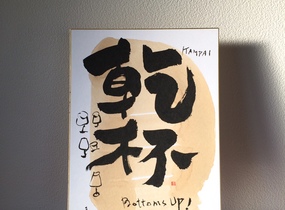 乾杯
KAMPAI
Bottoms UP!